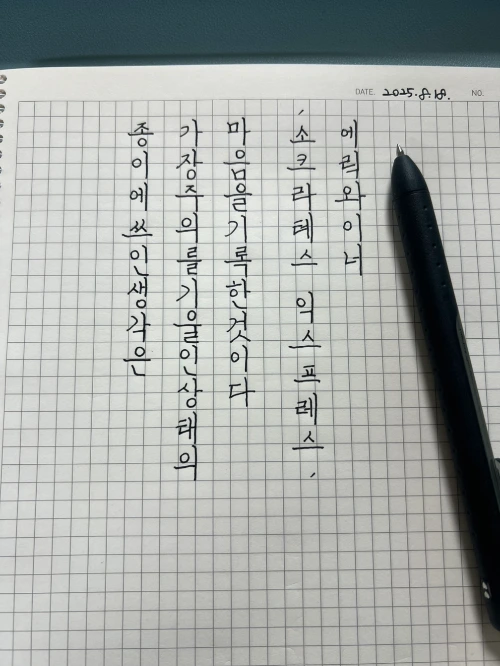 DATE. 2025.8.18. NO.
종이에쓰인생각은
가장주의를기울인상태의
마음을기록한것이다
'소크라테스 익스프레스'
에릭와이너